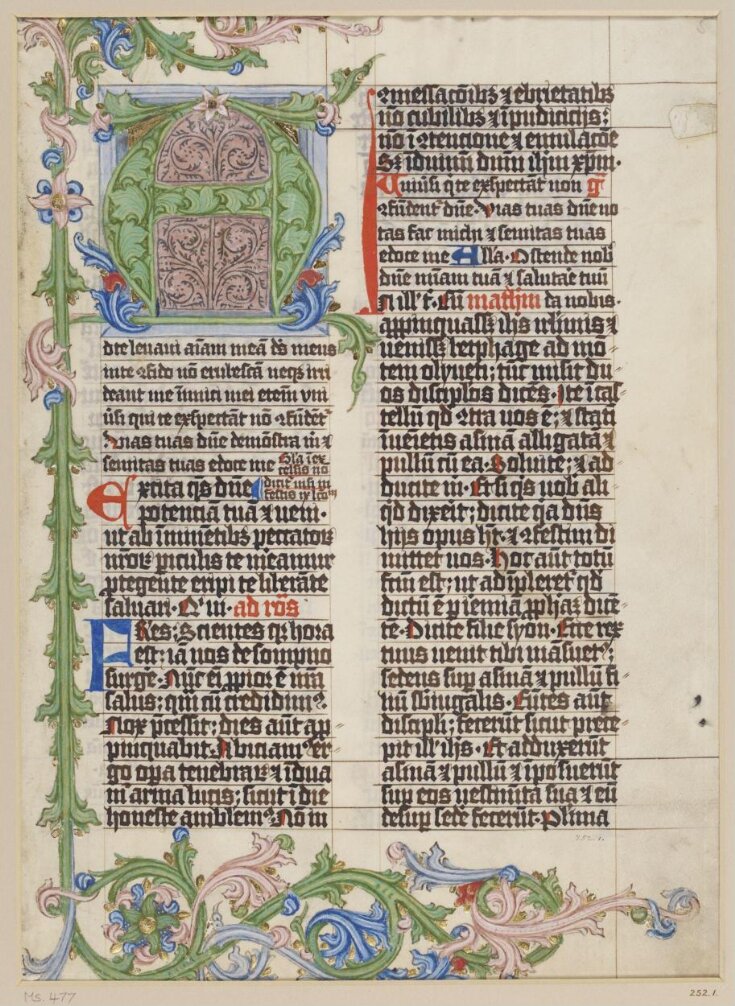 A
dte levavi aīam meā dˢ meus
in te ↄfido nō erubescā neqȝ irri
deant me inimici mei etem̄ vni
ūsi qui te exspectāt nō ↄfūdēt᷑
Vias tuas dn̄e demōstra m̄ ⁊
semitas tuas edoce me Gl̄a ī ex
celsis nō
dicit᷑ nisi in
festis
Excita qs dn̄e
potenciā tuā ⁊ veni·
ut ab īminētibȝ peccatoꝝ
nr̄oꝝ ꝑiculis te mēam᷑
ꝓtegente eripi te liberāte
saluari· Q̇ vi· ad roās
FRēs: Scientes qꝛ hora
est; iā nos de sompno
surge· Nūc em̄ ꝓpioꝛ ē nr̄a
salus; qm̄ cū credidim᷒
Nox p̄cessit; dies aūt app
pinquabit. Abiciam᷒ er
go oꝑa tenebraꝝ ⁊ īdua
m᷒ arma lucis; sicut ī die
honeste ambulem᷒ Nō in
ↄmessacōibȝ ⁊ ebrietatibȝ
nō cubilibȝ ⁊ īpudicicijs;
nō ī ↄtencione ⁊ emulacōe
Sȝ īduimī dn̄m ihm̄ xpm̄·
Vniūsi q te exspectāt non ↄ
ↄfūdent᷑ dn̄e· Vias tuas dn̄e no
tas fac michi ⁊ semitas tuas
edoce me Alla· Ostende nob̄
dn̄e mīam tuā ⁊ salutāe tuū
In ill' t̄· Scd̄m mathm̄ da nobis·
Appinquass; ihs iherlimis ⁊
veniss; betphage ad mō
tem olyueti; tūc misit du
os discip̄los dicēs· Ite ī cas
tellū qd ↄtra vos ē; ⁊ stati
inveietis asinā alligatā ⁊
pullū cū ea· Soluite; ⁊ ad
ducite m̄· Et si qs vob̄ ali
qd dixeit; dicite qa dn̄s
hijs opus hȝ; ⁊ ↄfestim di
mittet vos· Hoc aūt totū
fc̄m est; ut adīpleret᷑ qd
dictū ē ꝑ iemiā ꝓphaꝫ dicē
te· Dicite filie syon· Ecce rex
tuus venit tibi māsuet᷒;
sedens suꝑ asinā ⁊ pullū fi
liū sb̄iugalis· Eūtes aūt
discip̄li; fecerūt sicut p̄ce
pit ill' ihs· Et adduxerūt
asinā ⁊ pullū ⁊ īposuerūt
suꝑ eos vestim̄ta sua ⁊ eū
desuꝑ sedē fecerūt· Plīma
252.1.
Ms. 477
252.1.